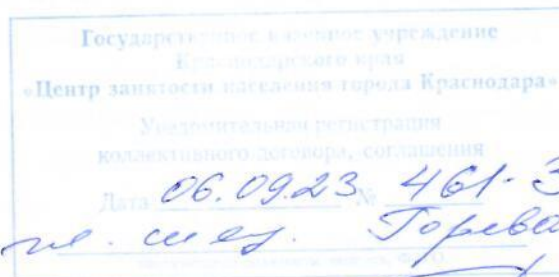 Государственное казенное учреждение
Краснодарского края
«Центр занятости населения города Краснодара»
Уведомительная регистрация
коллективного договора, соглашения
Дата 06.09.23 № 461-3
гл. спец.